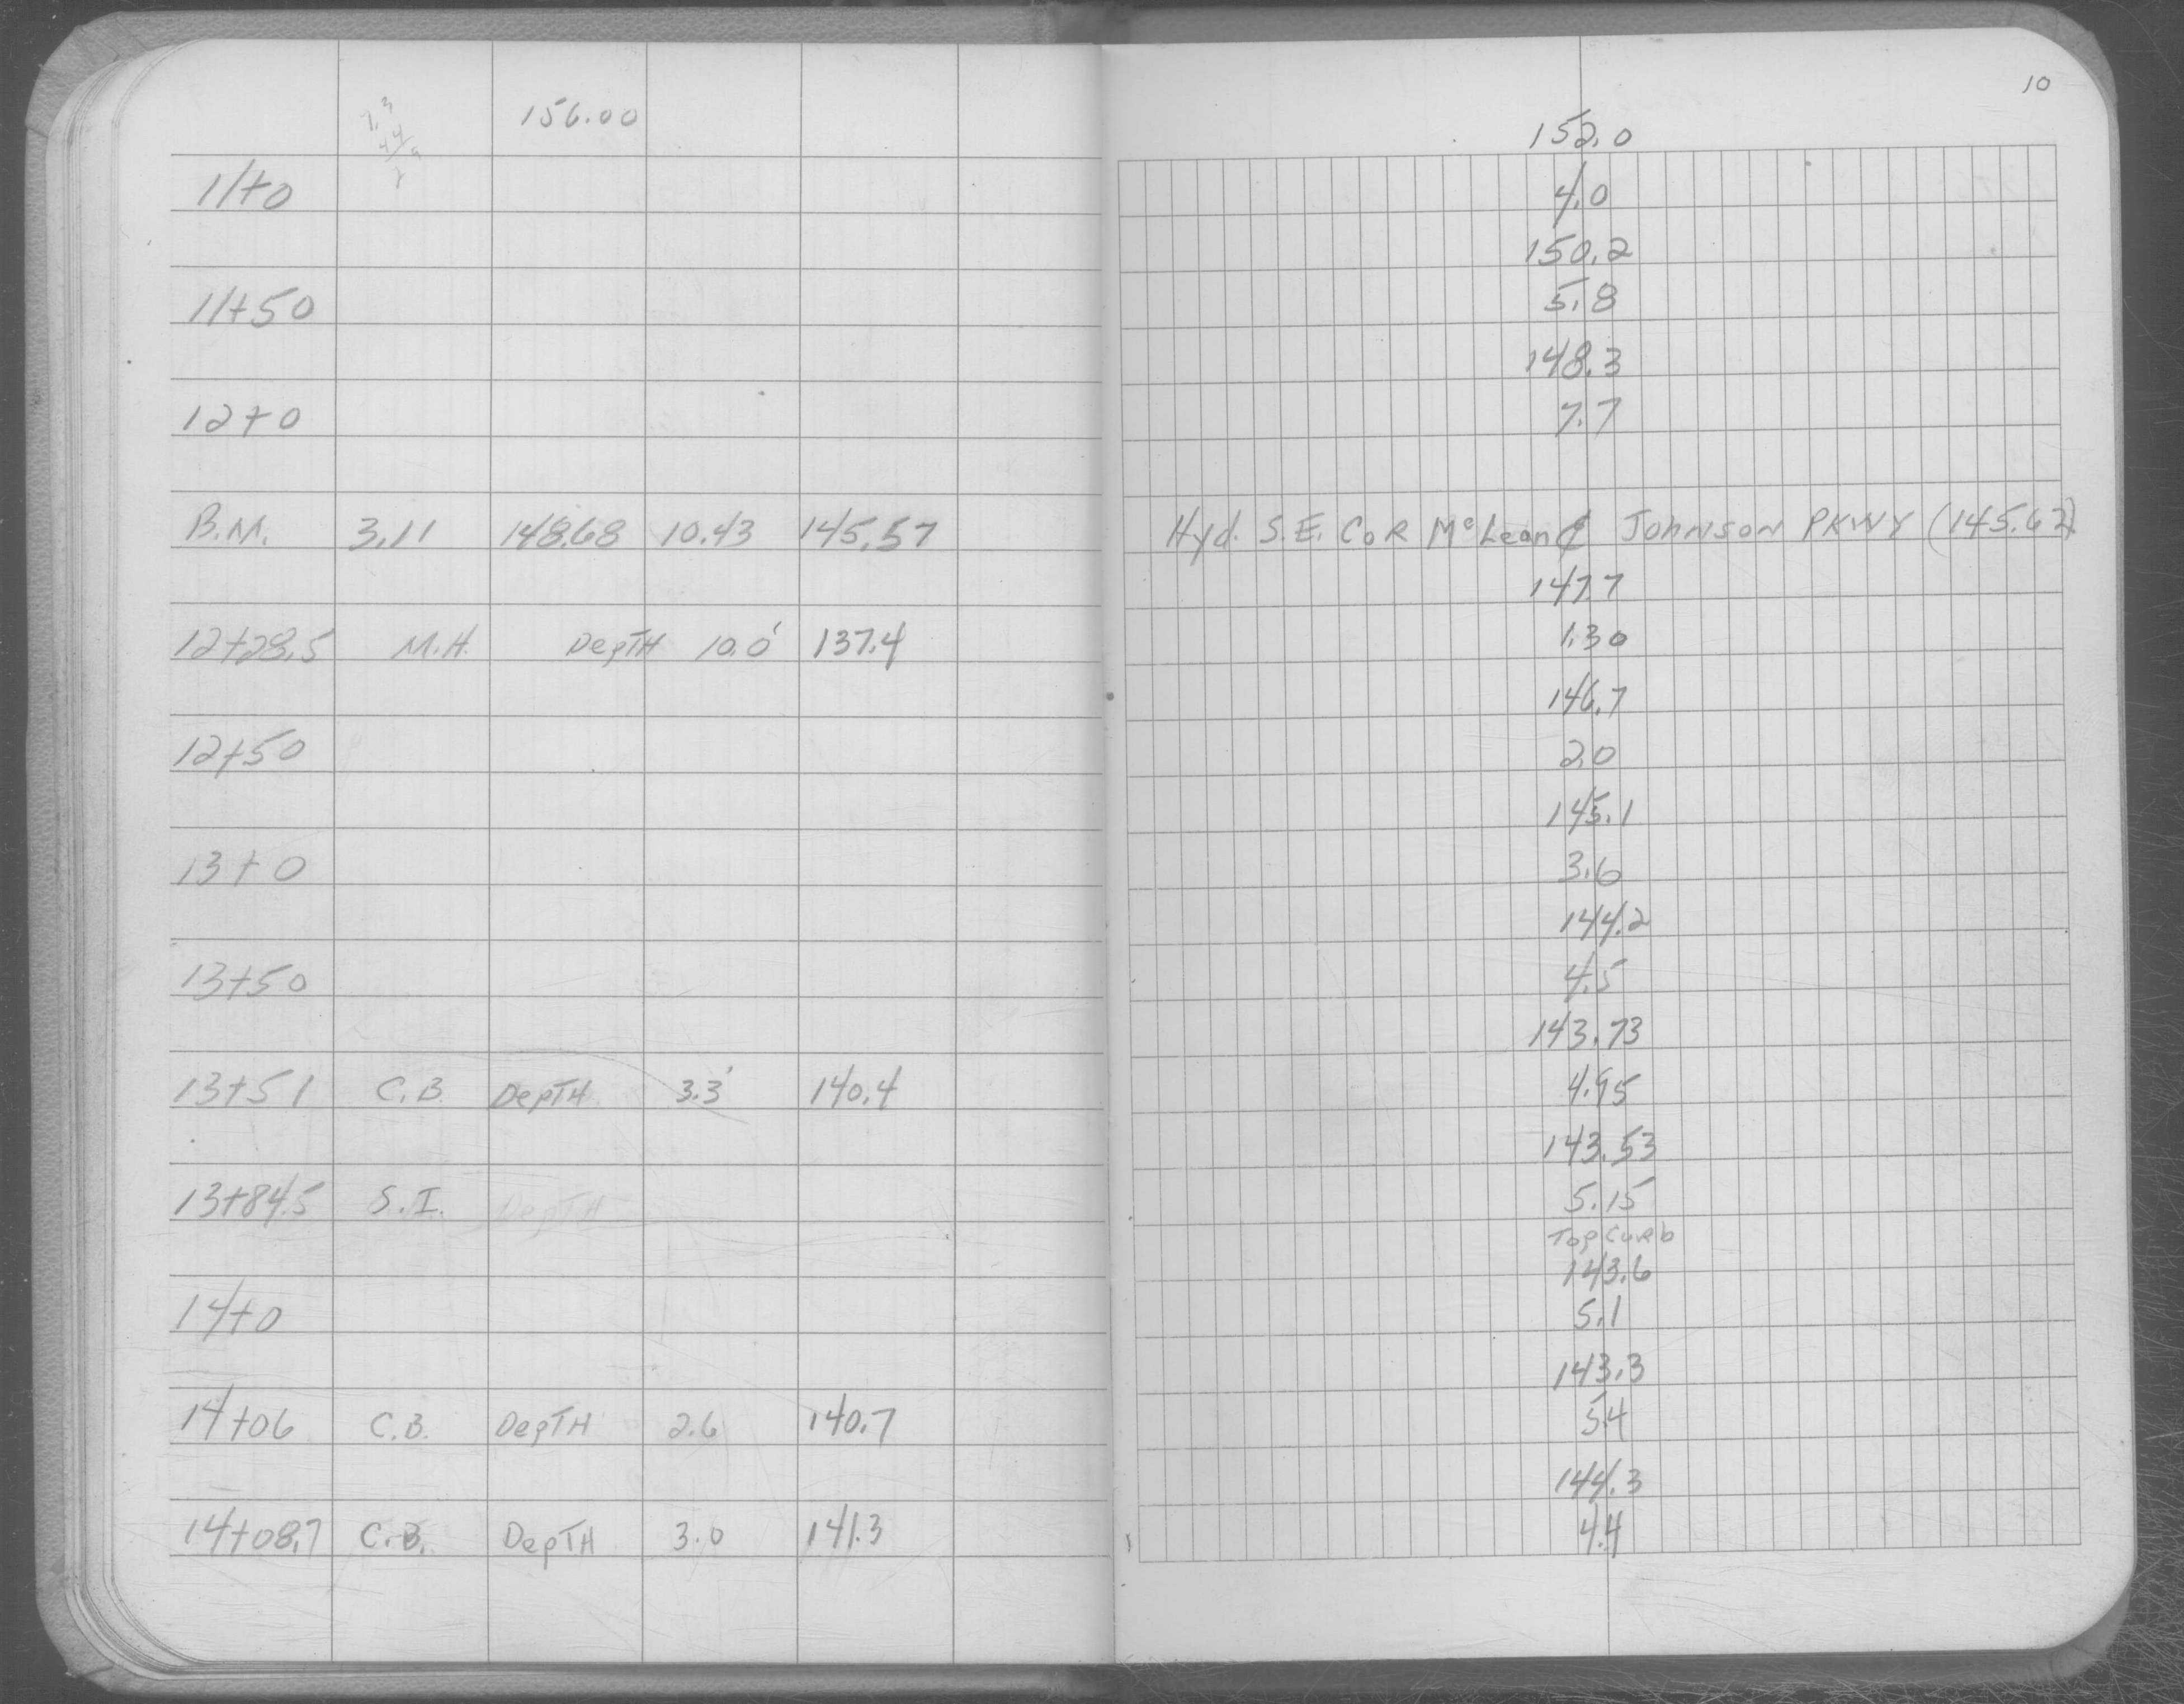 10
156.00 152.0
11+0 4.0
150.2
11+50 5.8
148.3
12+0 7.7
B.M. 3.11 148.68 10.43 145.57 Hyd. S.E. CoR McLean ₵ JOHNSON PKWY (145.62)
147.7
12+28.5 M.H. DepTH 10.0' 137.4 1.30
146.7
12+50 2.0
145.1
13+0 3.6
144.2
13+50 4.5
143.73
13+51 C.B. DepTH 3.3' 140.4 4.95
143.53
13+84.5 S.I. DepTH 5.15
Top CuRb
143.6
14+0 5.1
143.3
14+06 C.B. DepTH 2.6 140.7 5.4
144.3
14+08.7 C.B. DepTH 3.0 141.3 4.4